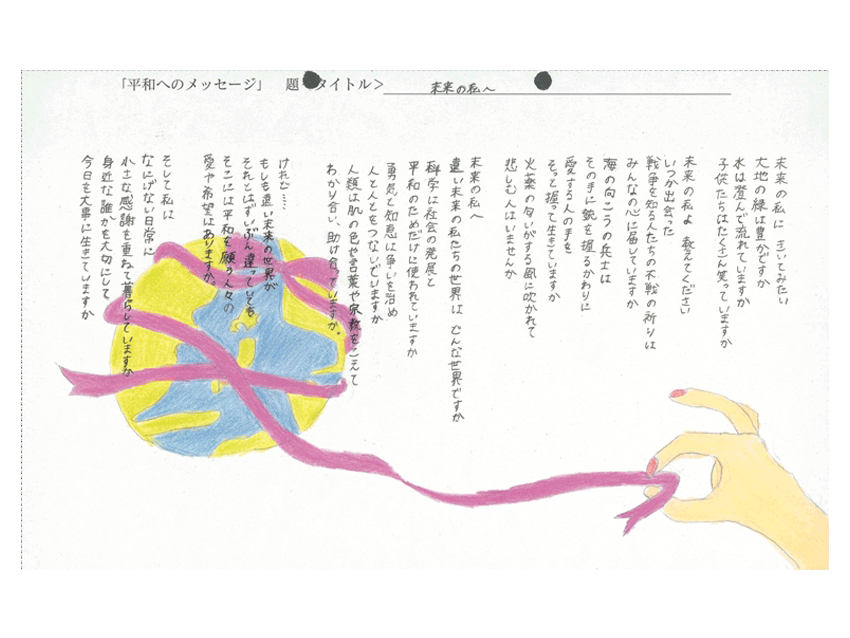 「平和へのメッセージ」 題<タイトル> 未来の私へ
未来の私に きいてみたい
大地の緑は豊かですか
水は澄んで流れていますか
子供たちはたくさん笑っていますか
未来の私よ 教えてください
いつか出会った
戦争を知る人たちの不戦の祈りは
みんなの心に届いていますか
海の向こうの兵士は
その手に銃を握るかわりに
愛する人の手を
そっと握って生きていますか
火薬の匂いがする風に吹かれて
悲しむ人はいませんか
未来の私へ
遠い未来の私たちの世界は どんな世界ですか
科学は社会の発展と
平和のためだけに使われていますか
勇気と知恵は争いを治め
人と人とをつないでいますか
人類は肌の色や言葉や宗教をこえて
わかり合い、助け合っていますか。
けれど……
もしも遠い未来の世界が
それとはずいぶん違っていても
そこには平和を願う人々の
愛や希望はありますか。
そして私は
なにげない日常に
小さな感謝を重ねて暮らしていますか
身近な誰かを大切にして
今日を大事に生きていますか